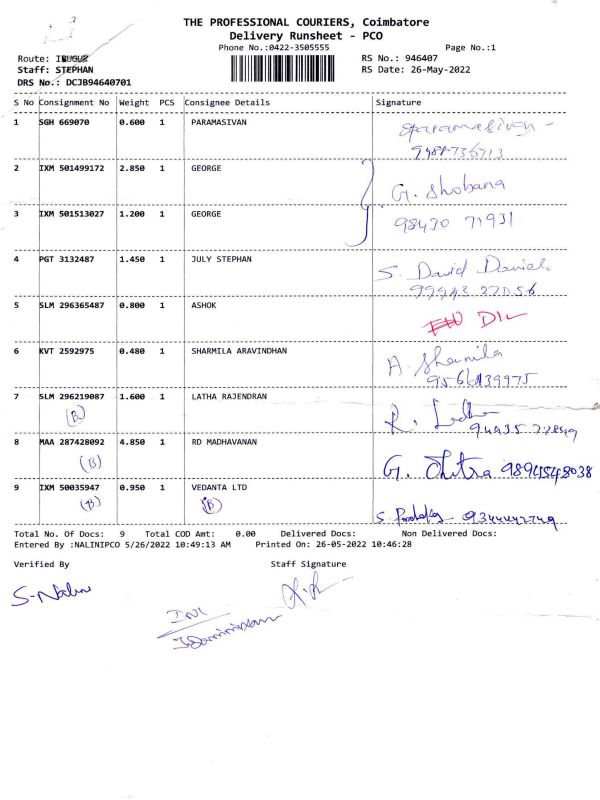 THE PROFESSIONAL COURIERS, Coimbatore
Delivery Runsheet - PCO
Phone No.:0422-3505555 Page No.:1
Route: RS No.: 946407
Staff: STEPHAN RS Date: 26-May-2022
DRS No.: DCJB94640701
S No Consignment No Weight PCS Consignee Details Signature
1 SGH 669070 0.600 1 PARAMASIVAN
2 IXM 501499172 2.850 1 GEORGE G. Shobana
3 IXM 501513027 1.200 1 GEORGE 98430 71931
4 PGT 3132487 1.450 1 JULY STEPHAN S. David Daniel
5 SLM 296365487 0.800 1 ASHOK
6 KVT 2592975 0.480 1 SHARMILA ARAVINDHAN A
7 SLM 296219087 1.600 1 LATHA RAJENDRAN R.
(B)
8 MAA 287428092 4.850 1 RD MADHAVANAN G. Chitra 9894548038
(B)
9 IXM 50035947 0.950 1 VEDANTA LTD
(B) (B) 9344442749
Total No. Of Docs: 9 Total COD Amt: 0.00 Delivered Docs: Non Delivered Docs:
Entered By :NALINIPCO 5/26/2022 10:49:13 AM Printed On: 26-05-2022 10:46:28
Verified By Staff Signature